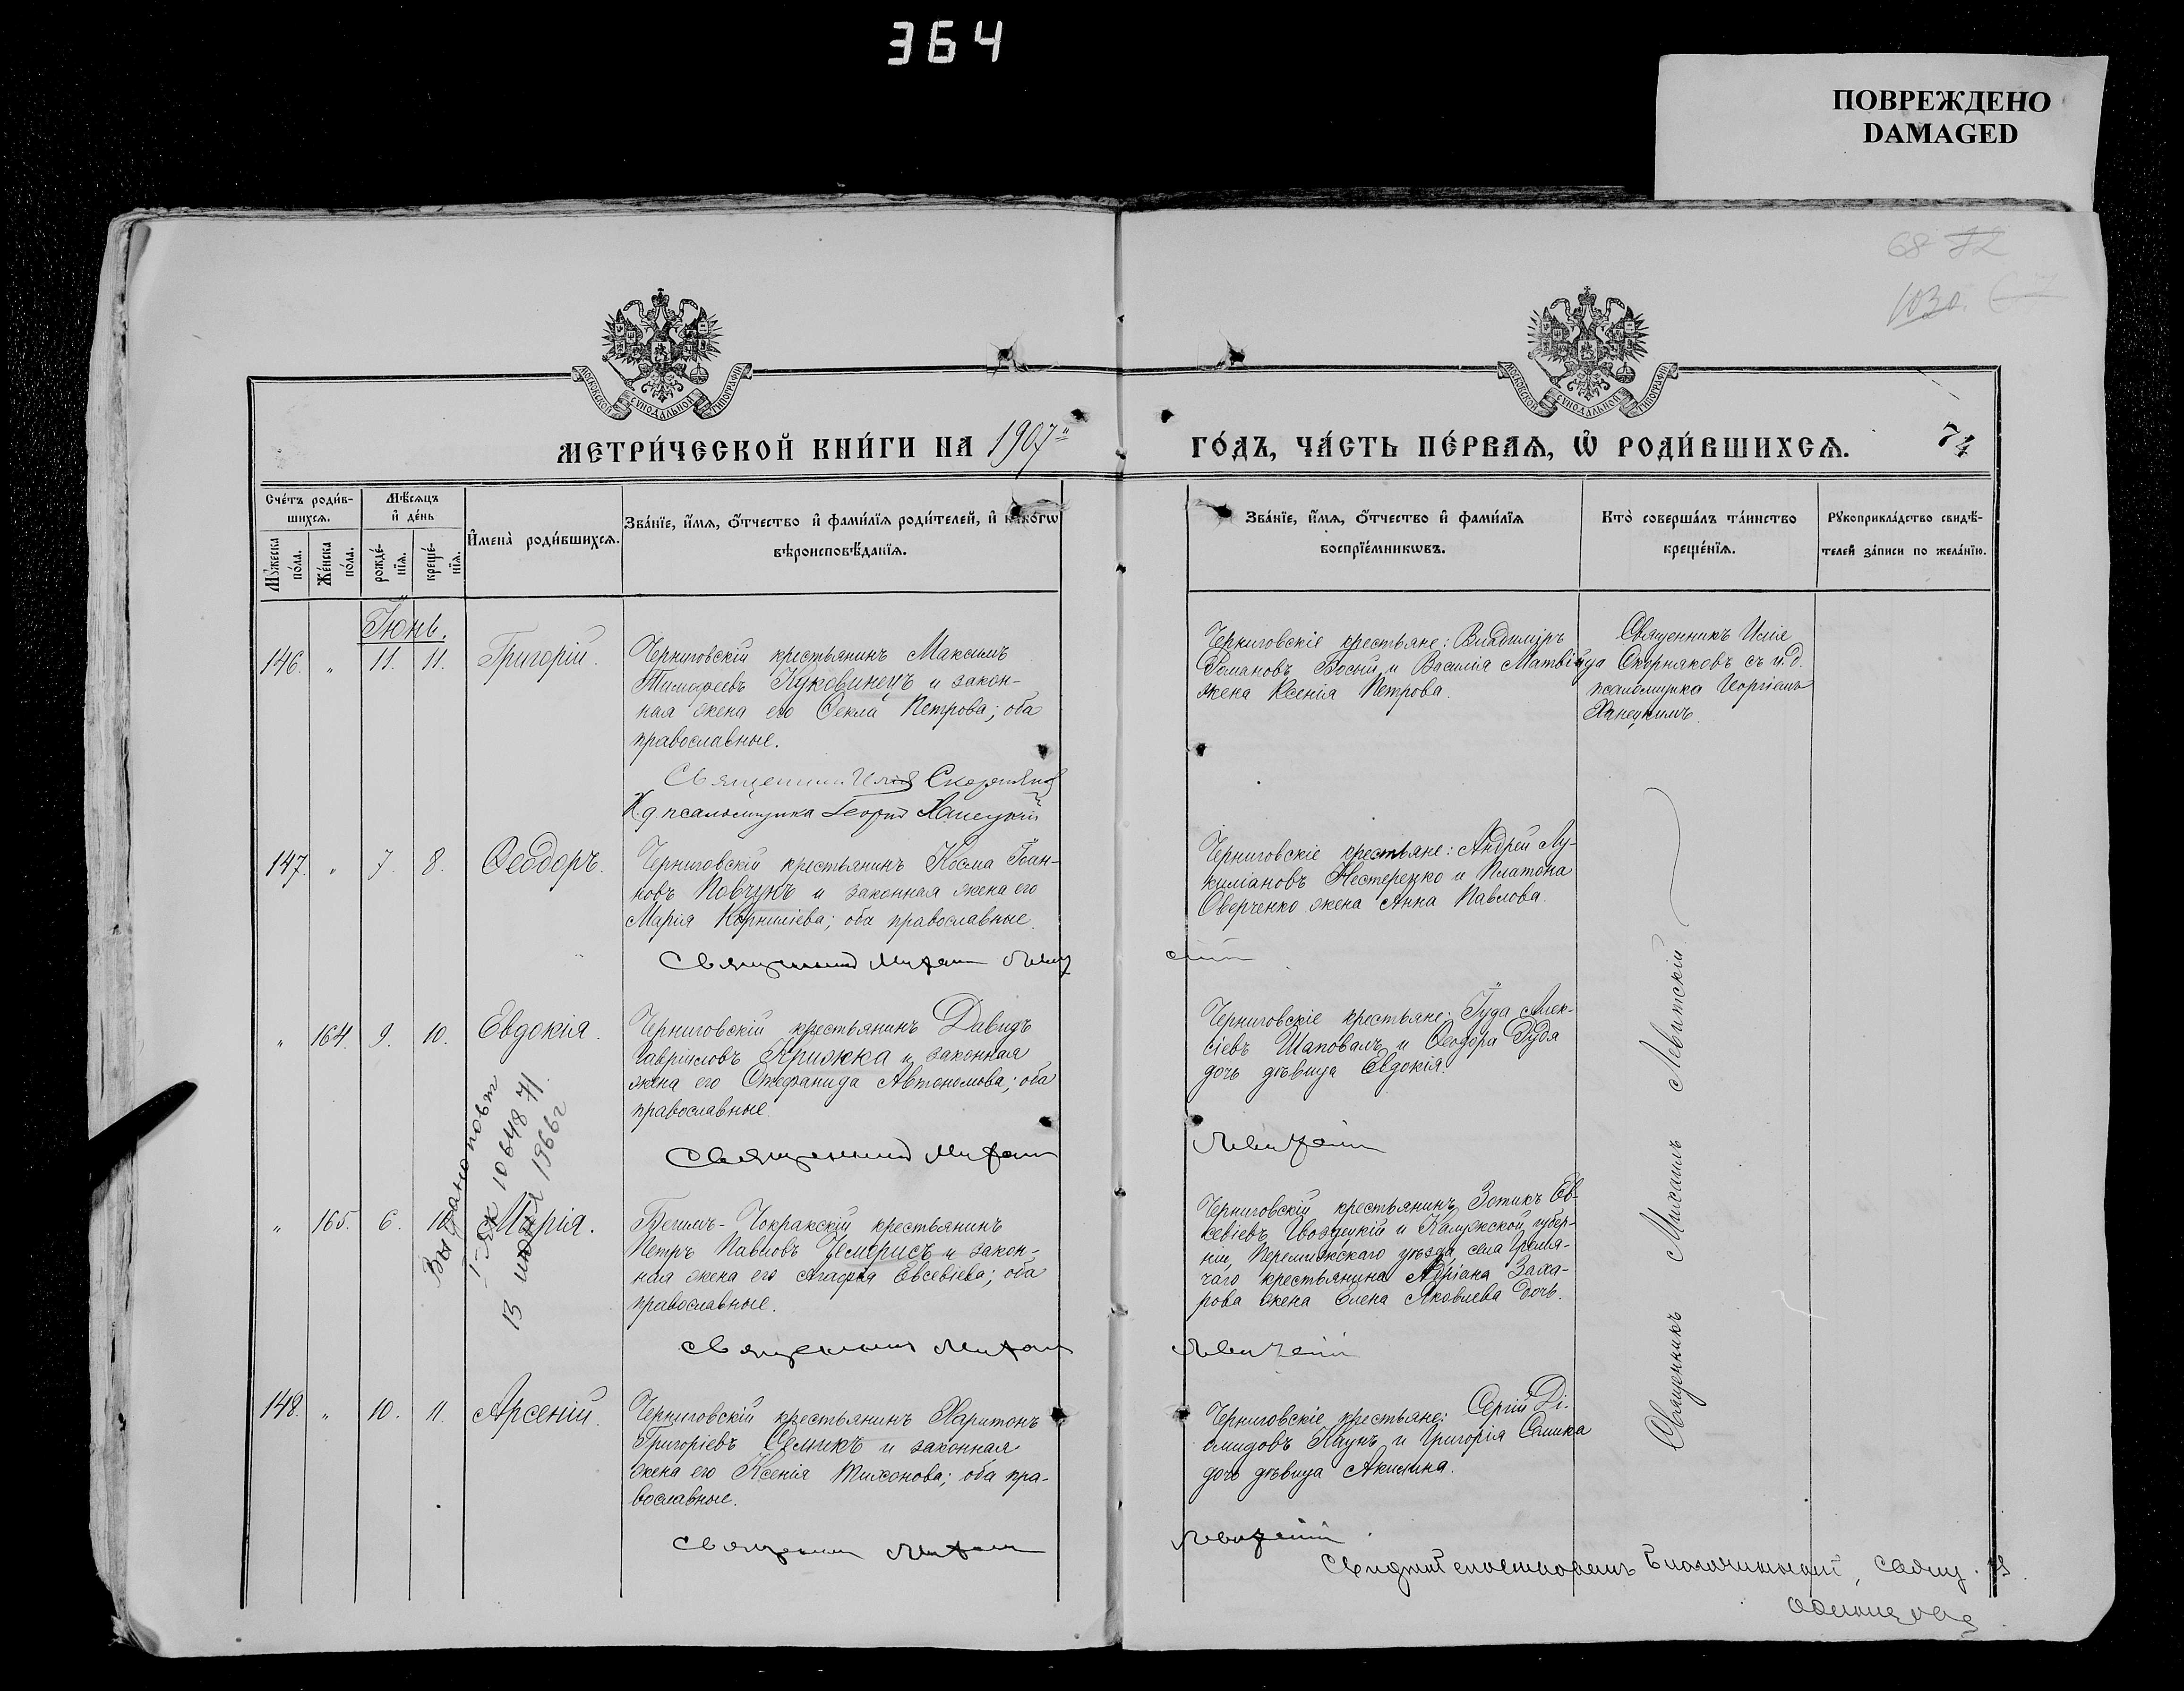 364
ПОВРЕЖДЕНО
DAMAGED
68 72
1030.
МОСКОВСКОЙ СѴНОДАЛЬНОЙ ТИПОГРАФІИ
МОСКОВСКОЙ СѴНОДАЛЬНОЙ ТИПОГРАФІИ
МЕТРИ́ЧЕСКОЙ КНИ́ГИ НА 1907
ГО́ДЪ, ЧА́СТЬ ПЕ́РВАѦ, Ѡ҆ РОДИ́ВШИХСѦ.
Сче́тъ роди́в-
шихсѧ.
Мꙋ́жеска
по́ла.
Же́нска
по́ла.
Мѣ́сѧцъ
и҆ де́нь
рожде́-
нїѧ.
креще́-
нїѧ.
И҆мена̀ роди́вшихсѧ.
Зва́нїе, и҆́мѧ, о҆́тчество и҆ фами́лїѧ роди́телей, и҆ како́гѡ
вѣроисповѣ́данїѧ.
Зва́нїе, и҆́мѧ, о҆́тчество и҆ фами́лїѧ
воспрїе́мникѡвъ.
Кто̀ соверша́лъ та́инство
креще́нїѧ.
Рꙋкоприкла́дство свидѣ́-
телей за́писи по жела́нїю.
Іюнь.
146. " 11. 11. Григорій.
Черниговскій крестьянинъ Максимъ
Тимофеевъ Куковинецъ и закон-
ная жена его Ѳекла Петрова; оба
православные.
Священник Илія Скорняков
И.д. псаломщика Георгій Ханецкій
Черниговскіе крестьяне: Владиміръ
Романовъ Босый и Василія Матвійца
жена Ксенія Петрова.
Священникъ Илія
Скорняковъ съ и.д.
псаломщика Георгіемъ
Ханецкимъ.
147. " 7. 8. Ѳеодоръ.
Черниговскій крестьянинъ Косма Іоан-
новъ Повзунъ и законная жена его
Марія Корниліева; оба православные.
Священник Михаил Левит
ский
Черниговскіе крестьяне: Андрей Лу-
киліановъ Нестеренко и Платона
Оверченко жена Анна Павлова.
" 164. 9. 10. Евдокія.
Черниговскій крестьянинъ Давидъ
Гавріиловъ Крижка и законная
жена его Стефанида Автономова; оба
православные
Священник Михаил
Левитский
Черниговскіе крестьяне: Іуда Алек-
сіевъ Шаповалъ и Ѳеодора Рудя
дочь дѣвица Евдокія.
Выдано повт
І-ЯК 1064871
13 июня 1966г
" 165. 6. 10. Марія.
Бегимъ-Чокракскій крестьянинъ
Петръ Павловъ Чемерисъ и закон-
ная жена его Агафія Евсевіева; оба
православные.
Священник Михаил
Левитский
Черниговскій крестьянинъ Зотикъ Ев-
севіевъ Гвоздецкій и Калужской губер-
ніи, Перемижскаго уѣзда, села Гремя-
чаго крестьянина Адріана Заха-
рова жена Елена Яковлева дочь.
148. " 10. 11. Арсеній.
Черниговскій крестьянинъ Харитонъ
Григоріевъ Семикъ и законная
жена его Ксенія Тихонова; оба пра-
вославные.
Священник Михаил
Левитский
Черниговскіе крестьяне: Сергій Ді-
омидовъ Каунъ и Григорія Семика
дочь дѣвица Акилина.
Священникъ Михаилъ Левитскій